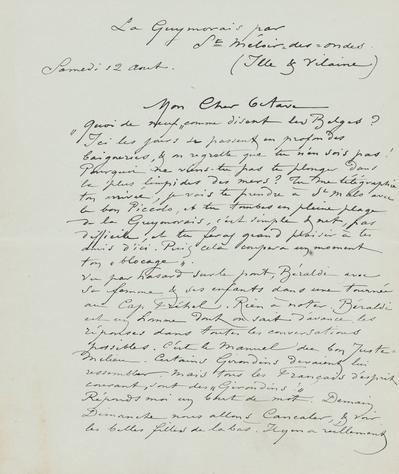 La Guymorais par
St Méloir-des-ondes.
(Ille & Vilaine)
Samedi 12 Aout.
Mon Cher Octave
"Quoi de neuf" comme disent les Belges ?
Ici les jours se passent en profondes
baigneries, & on regrette que tu n'en sois pas !
Pourquoi ne viens-tu pas te plonger dans
la plus limpide des mers ? Tu me télégraphies
ton arrivée, je vais te prendre à St Malo avec
le bon Piccolo, et tu tombes en pleine plage
de la Guymorais, c'est simple & net, pas
difficile, et tu feras grand plaisir à tes
amis d'ici. Puis celà coupera un moment
ton "blocage".
Vu par hasard sur le pont, Béraldi avec
sa femme & ses enfants dans une tournée
au Cap Fréhel. Rien à noter. Béraldi
est un homme dont on sait d'avance les
réponses dans toutes les conversations
possibles. C'est le Manuel du bon Juste-
Milieu. Certains Girondins devaient lui
ressembler. Mais tous les Français d'esprit
courant, sont des "Girondins"!
Réponds moi un bout de mot. Demain
Dimanche nous allons Cancaler, & voir
les belles filles de labas. Il y en a réellement